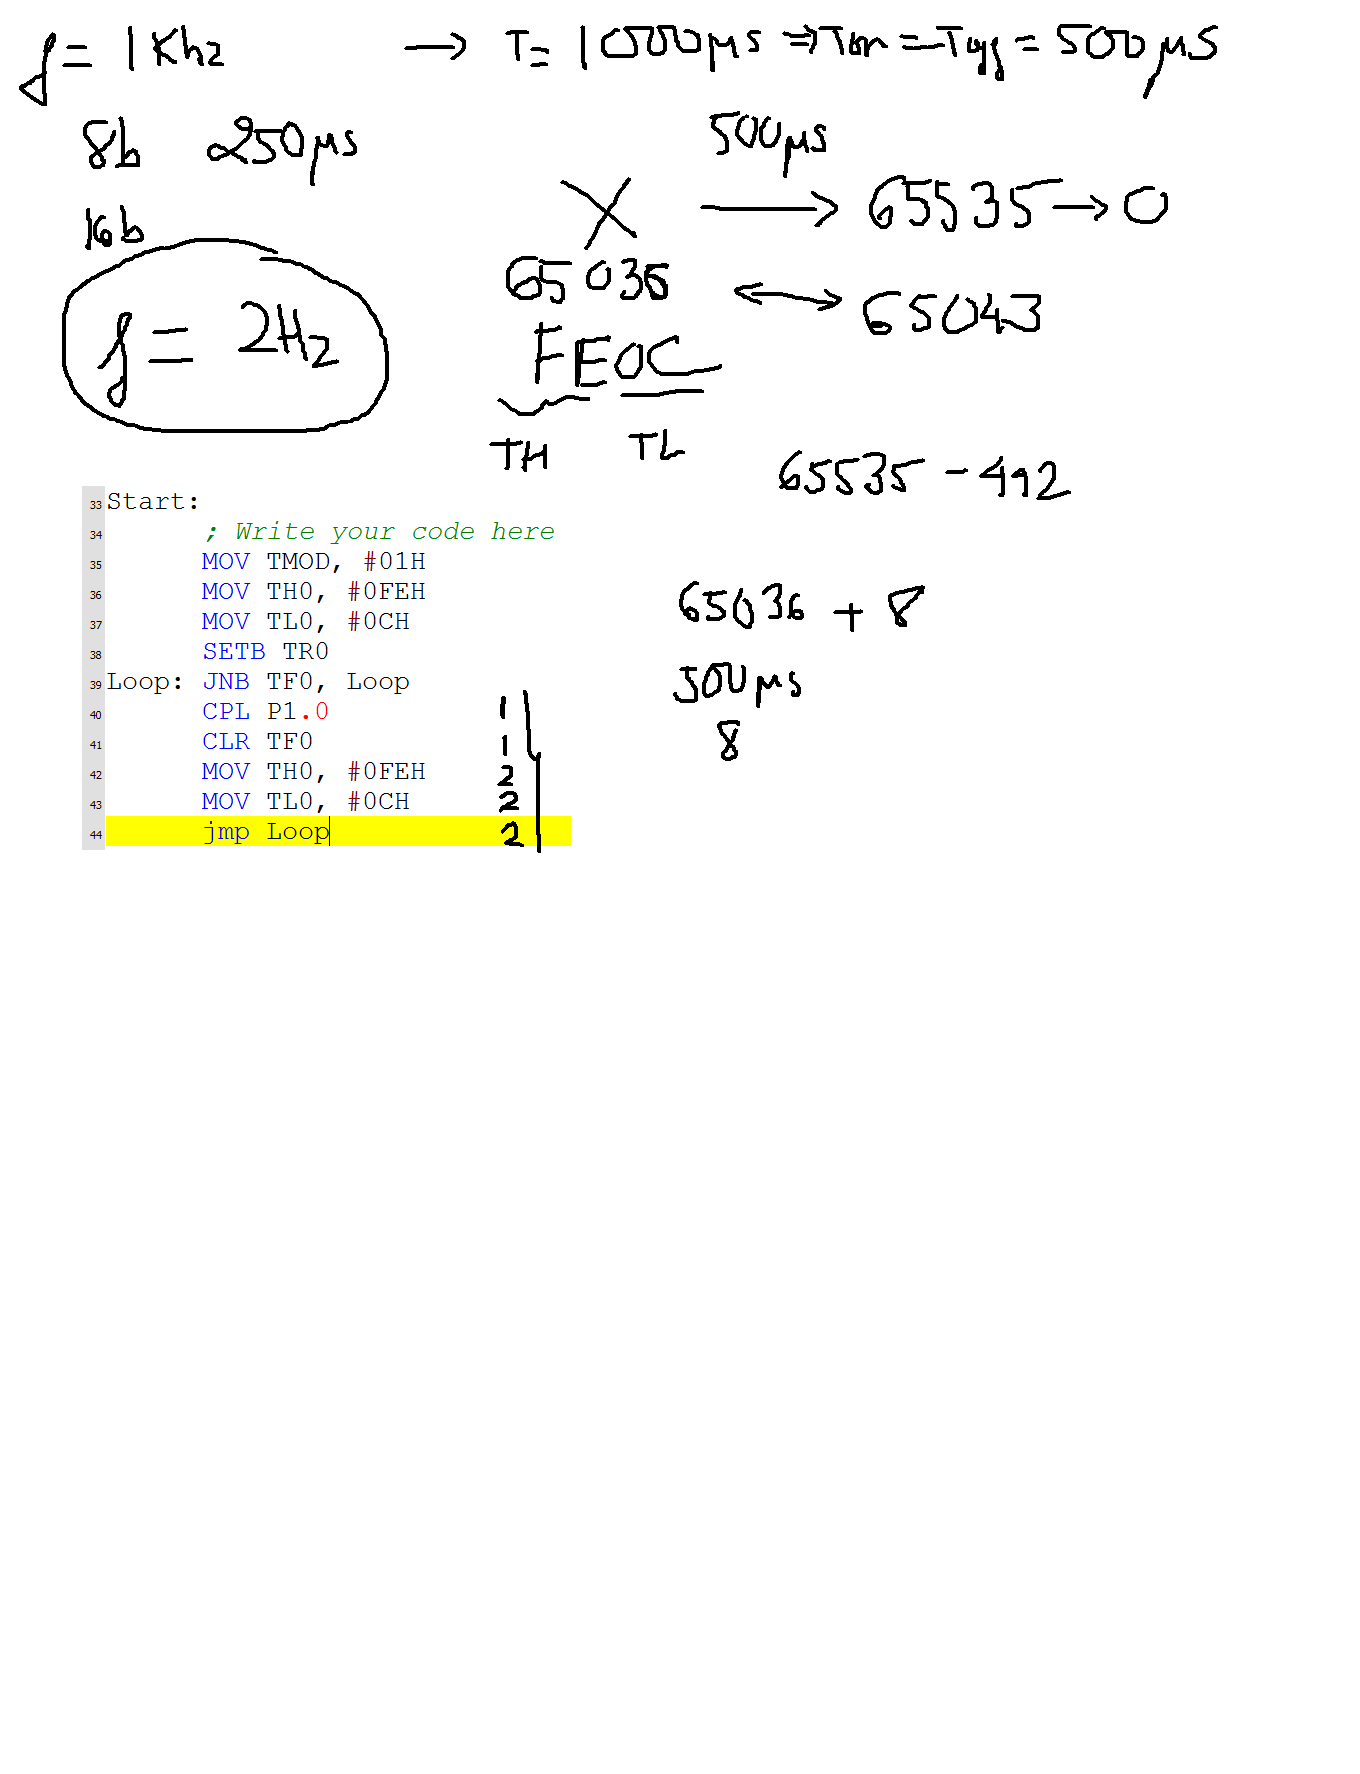 f = 1 Khz → T = 1000μs ⇒ Ton = Toff = 500μs
8b 250μs
500μs
16b
X → 65535 → 0
65036 ↔ 65043
f = 2Hz
FE0C
TH TL
65535 - 492
33 Start:
34 ; Write your code here
35 MOV TMOD, #01H
36 MOV TH0, #0FEH
37 MOV TL0, #0CH
38 SETB TR0
39 Loop: JNB TF0, Loop
40 CPL P1.0 1
41 CLR TF0 1
42 MOV TH0, #0FEH 2
43 MOV TL0, #0CH 2
44 jmp Loop 2
65036 + 8
500μs
8